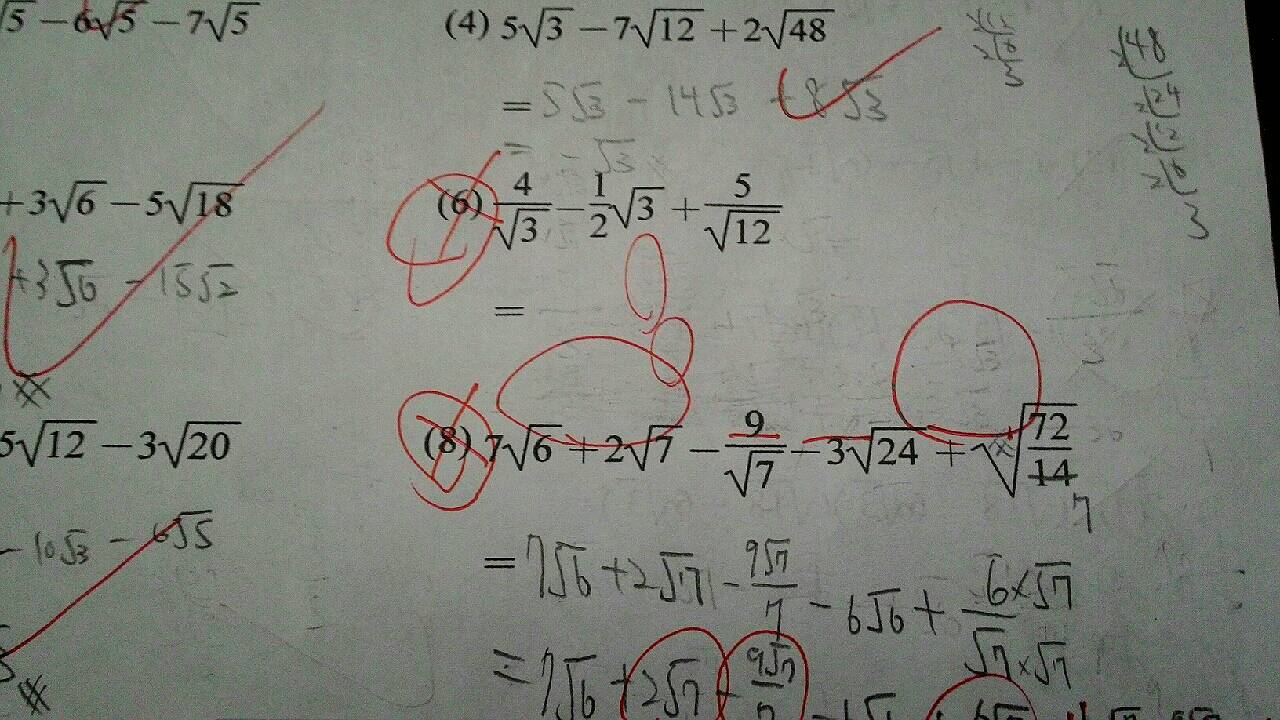 √5 − 6√5 − 7√5
(4) 5√3 − 7√12 + 2√48
= 5√3 − 14√3 + 8√3
= −√3
+ 3√6 − 5√18
+3√6 − 15√2
(6) 4/√3 − 1/2√3 + 5/√12
=
5√12 − 3√20
− 10√3 − 6√5
(8) 7√6 + 2√7 − 9/√7 − 3√24 + √72/14
7
= 7√6 + 2√7 − 9√7/7 − 6√6 + 6×√7/√7×√7
= 7√6 + 2√7 − 9√7/7
48
24
12
6
3